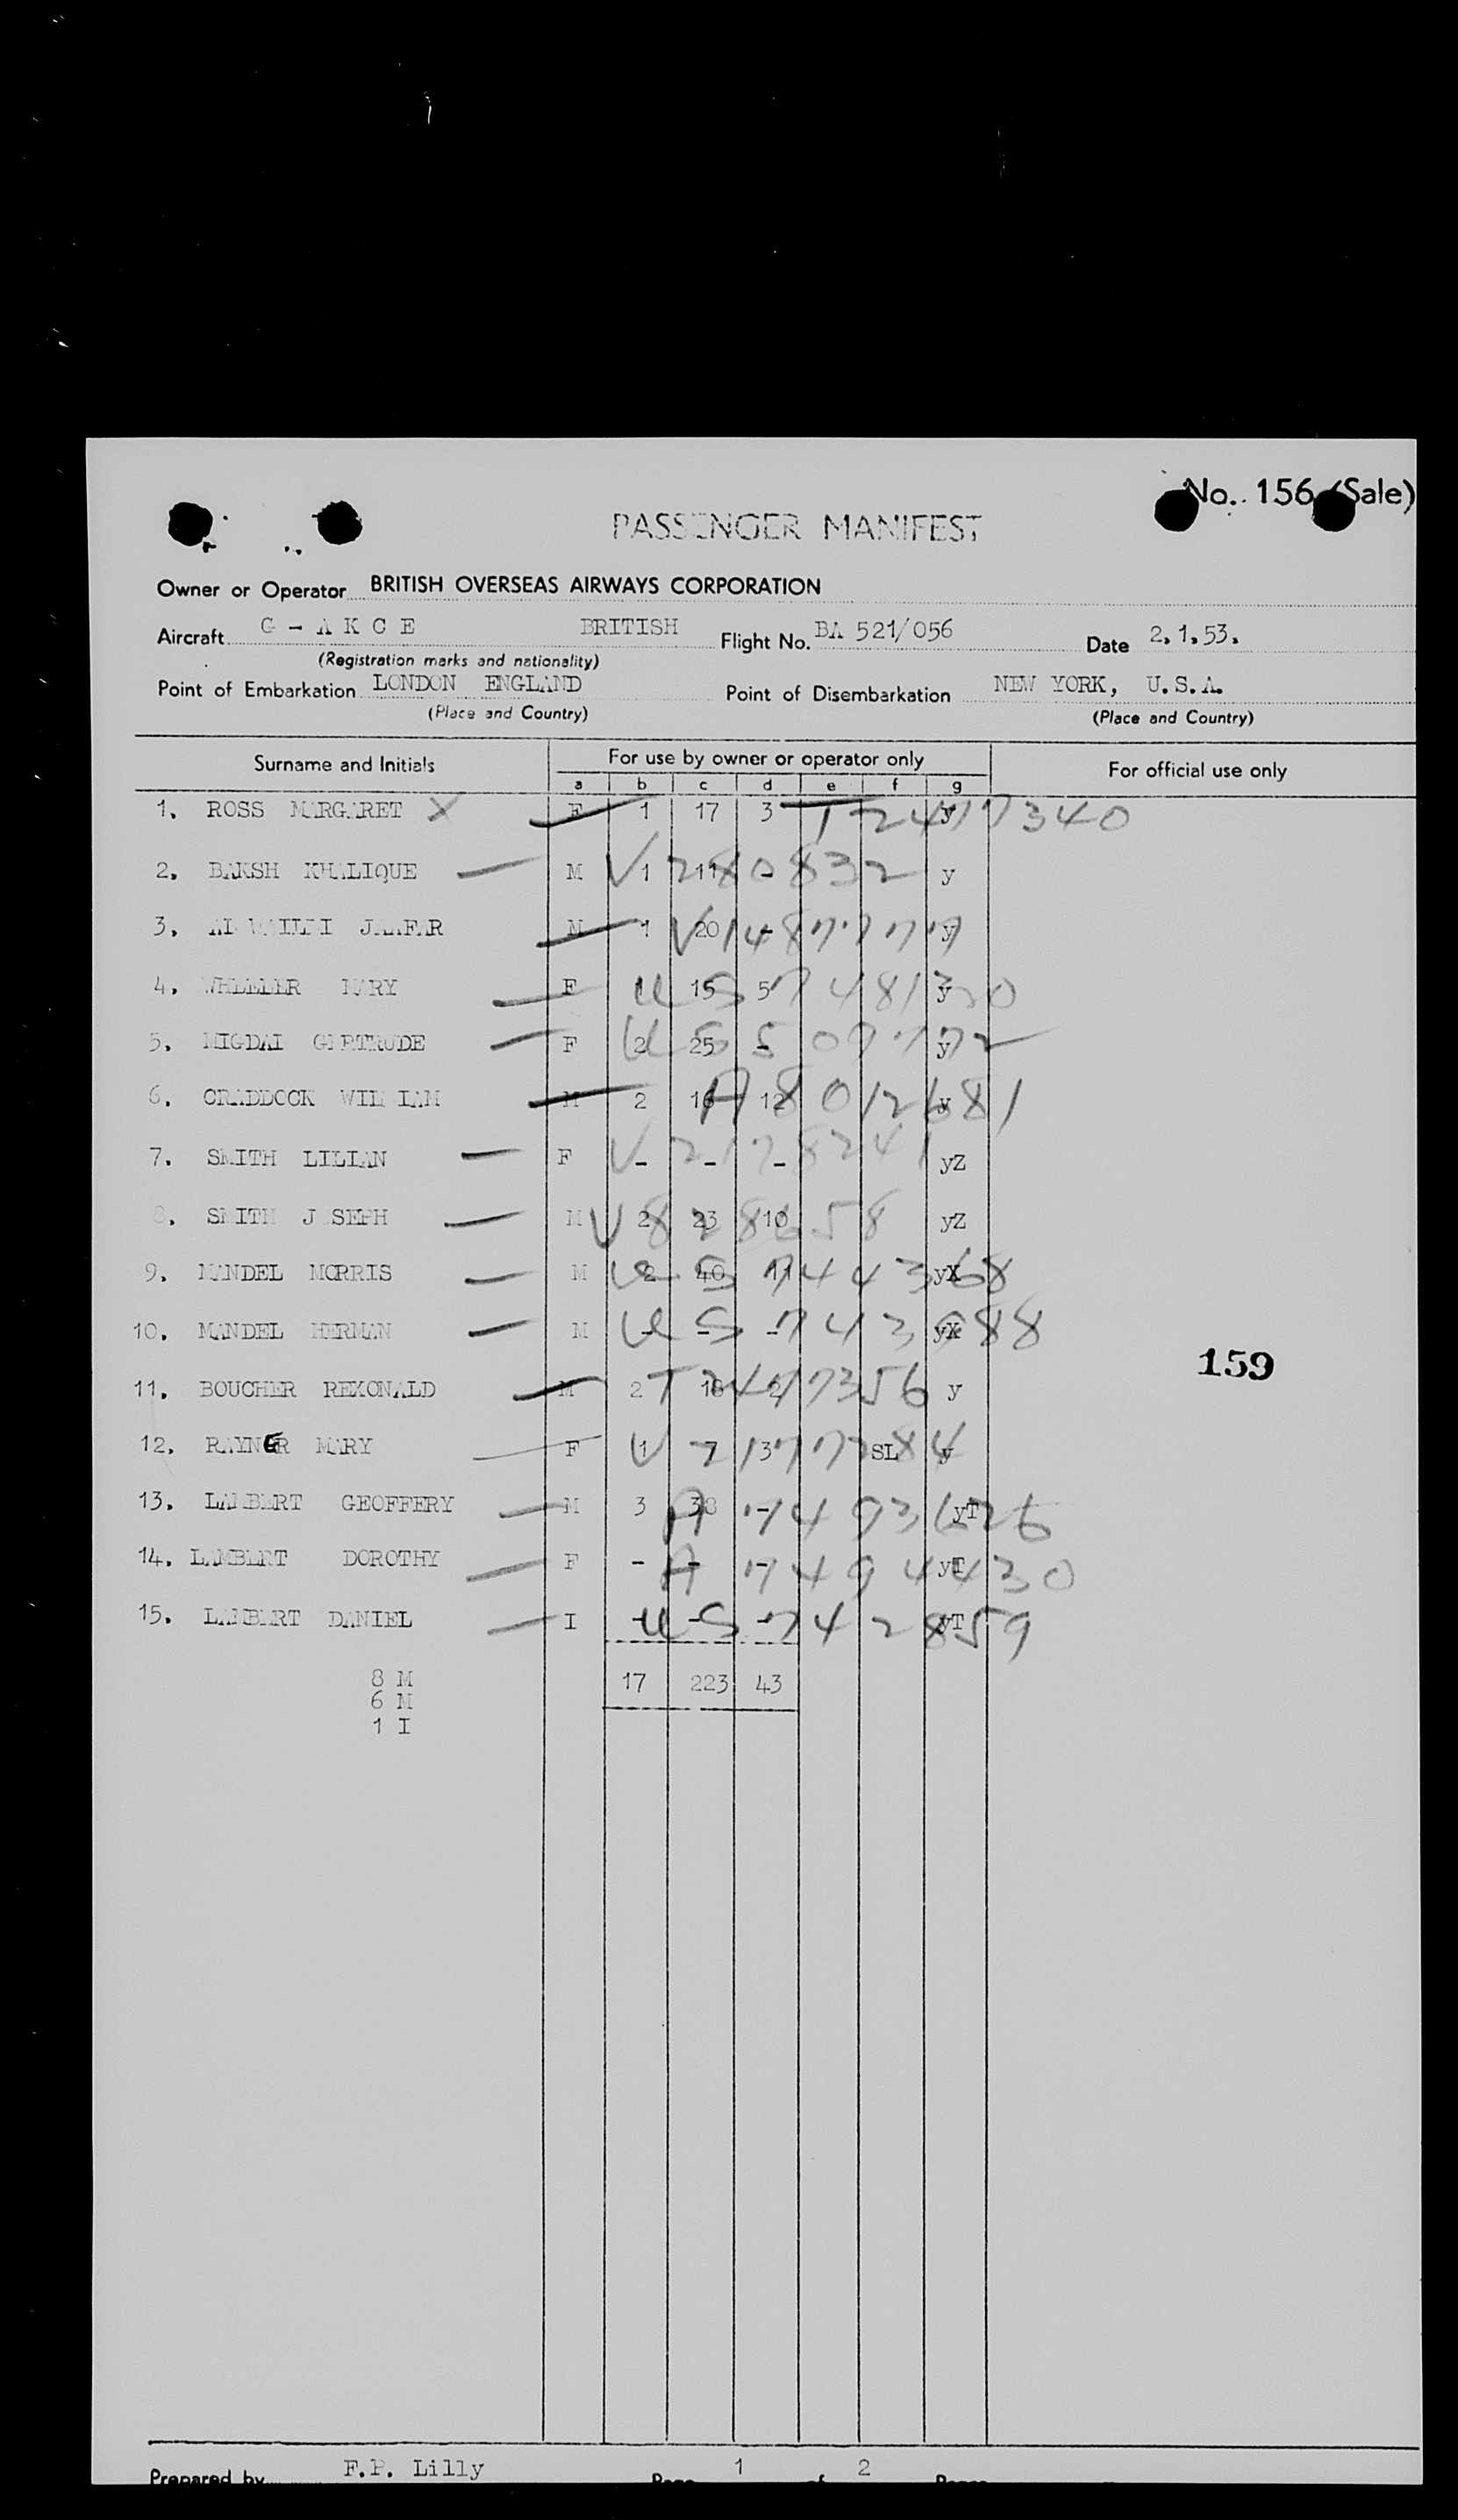 No. 156 (Sale)
PASSENGER MANIFEST
Owner or Operator BRITISH OVERSEAS AIRWAYS CORPORATION
Aircraft G - A K C E BRITISH Flight No. BA 521/056 Date 2.1.53.
(Registration marks and nationality)
Point of Embarkation LONDON ENGLAND Point of Disembarkation NEW YORK, U.S.A.
(Place and Country) (Place and Country)
Surname and Initials For use by owner or operator only For official use only
a b c d e f g
1. ROSS MARGARET X F 1 17 3 y T2477340
2. BAKSH KHALIQUE M 1 11 - y V280832
3. JAAFAR M 1 20 - y V1487777
4. WHEELER MARY F 15 5 y
5. MIGDAL GERTRUDE F 2 25 - y
6. CRADDOCK WILLIAM M 2 16 12 y A8012681
7. SMITH LILIAN F - - - yZ
8. SMITH JOSEPH M 2 23 10 yZ
9. MANDEL MORRIS M 2 40 11 yX
10. MANDEL HERMAN M - - - yX
159
11. BOUCHER REXONALD M 2 18 2 y T2477356
12. RAYNER MARY F 1 7 3 SL y
13. LAMBERT GEOFFERY M 3 38 - yT
14. LAMBERT DOROTHY F - - - yT A7494430
15. LAMBERT DANIEL I - - - yT US742859
8 M 17 223 43
6 M
1 I
Prepared by F.P. Lilly Page 1 of 2 Pages